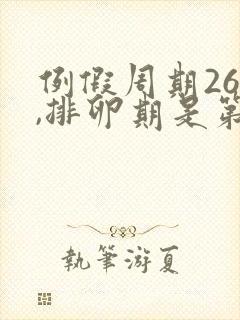 例假周期26
,排卵期是第
執筆游夏